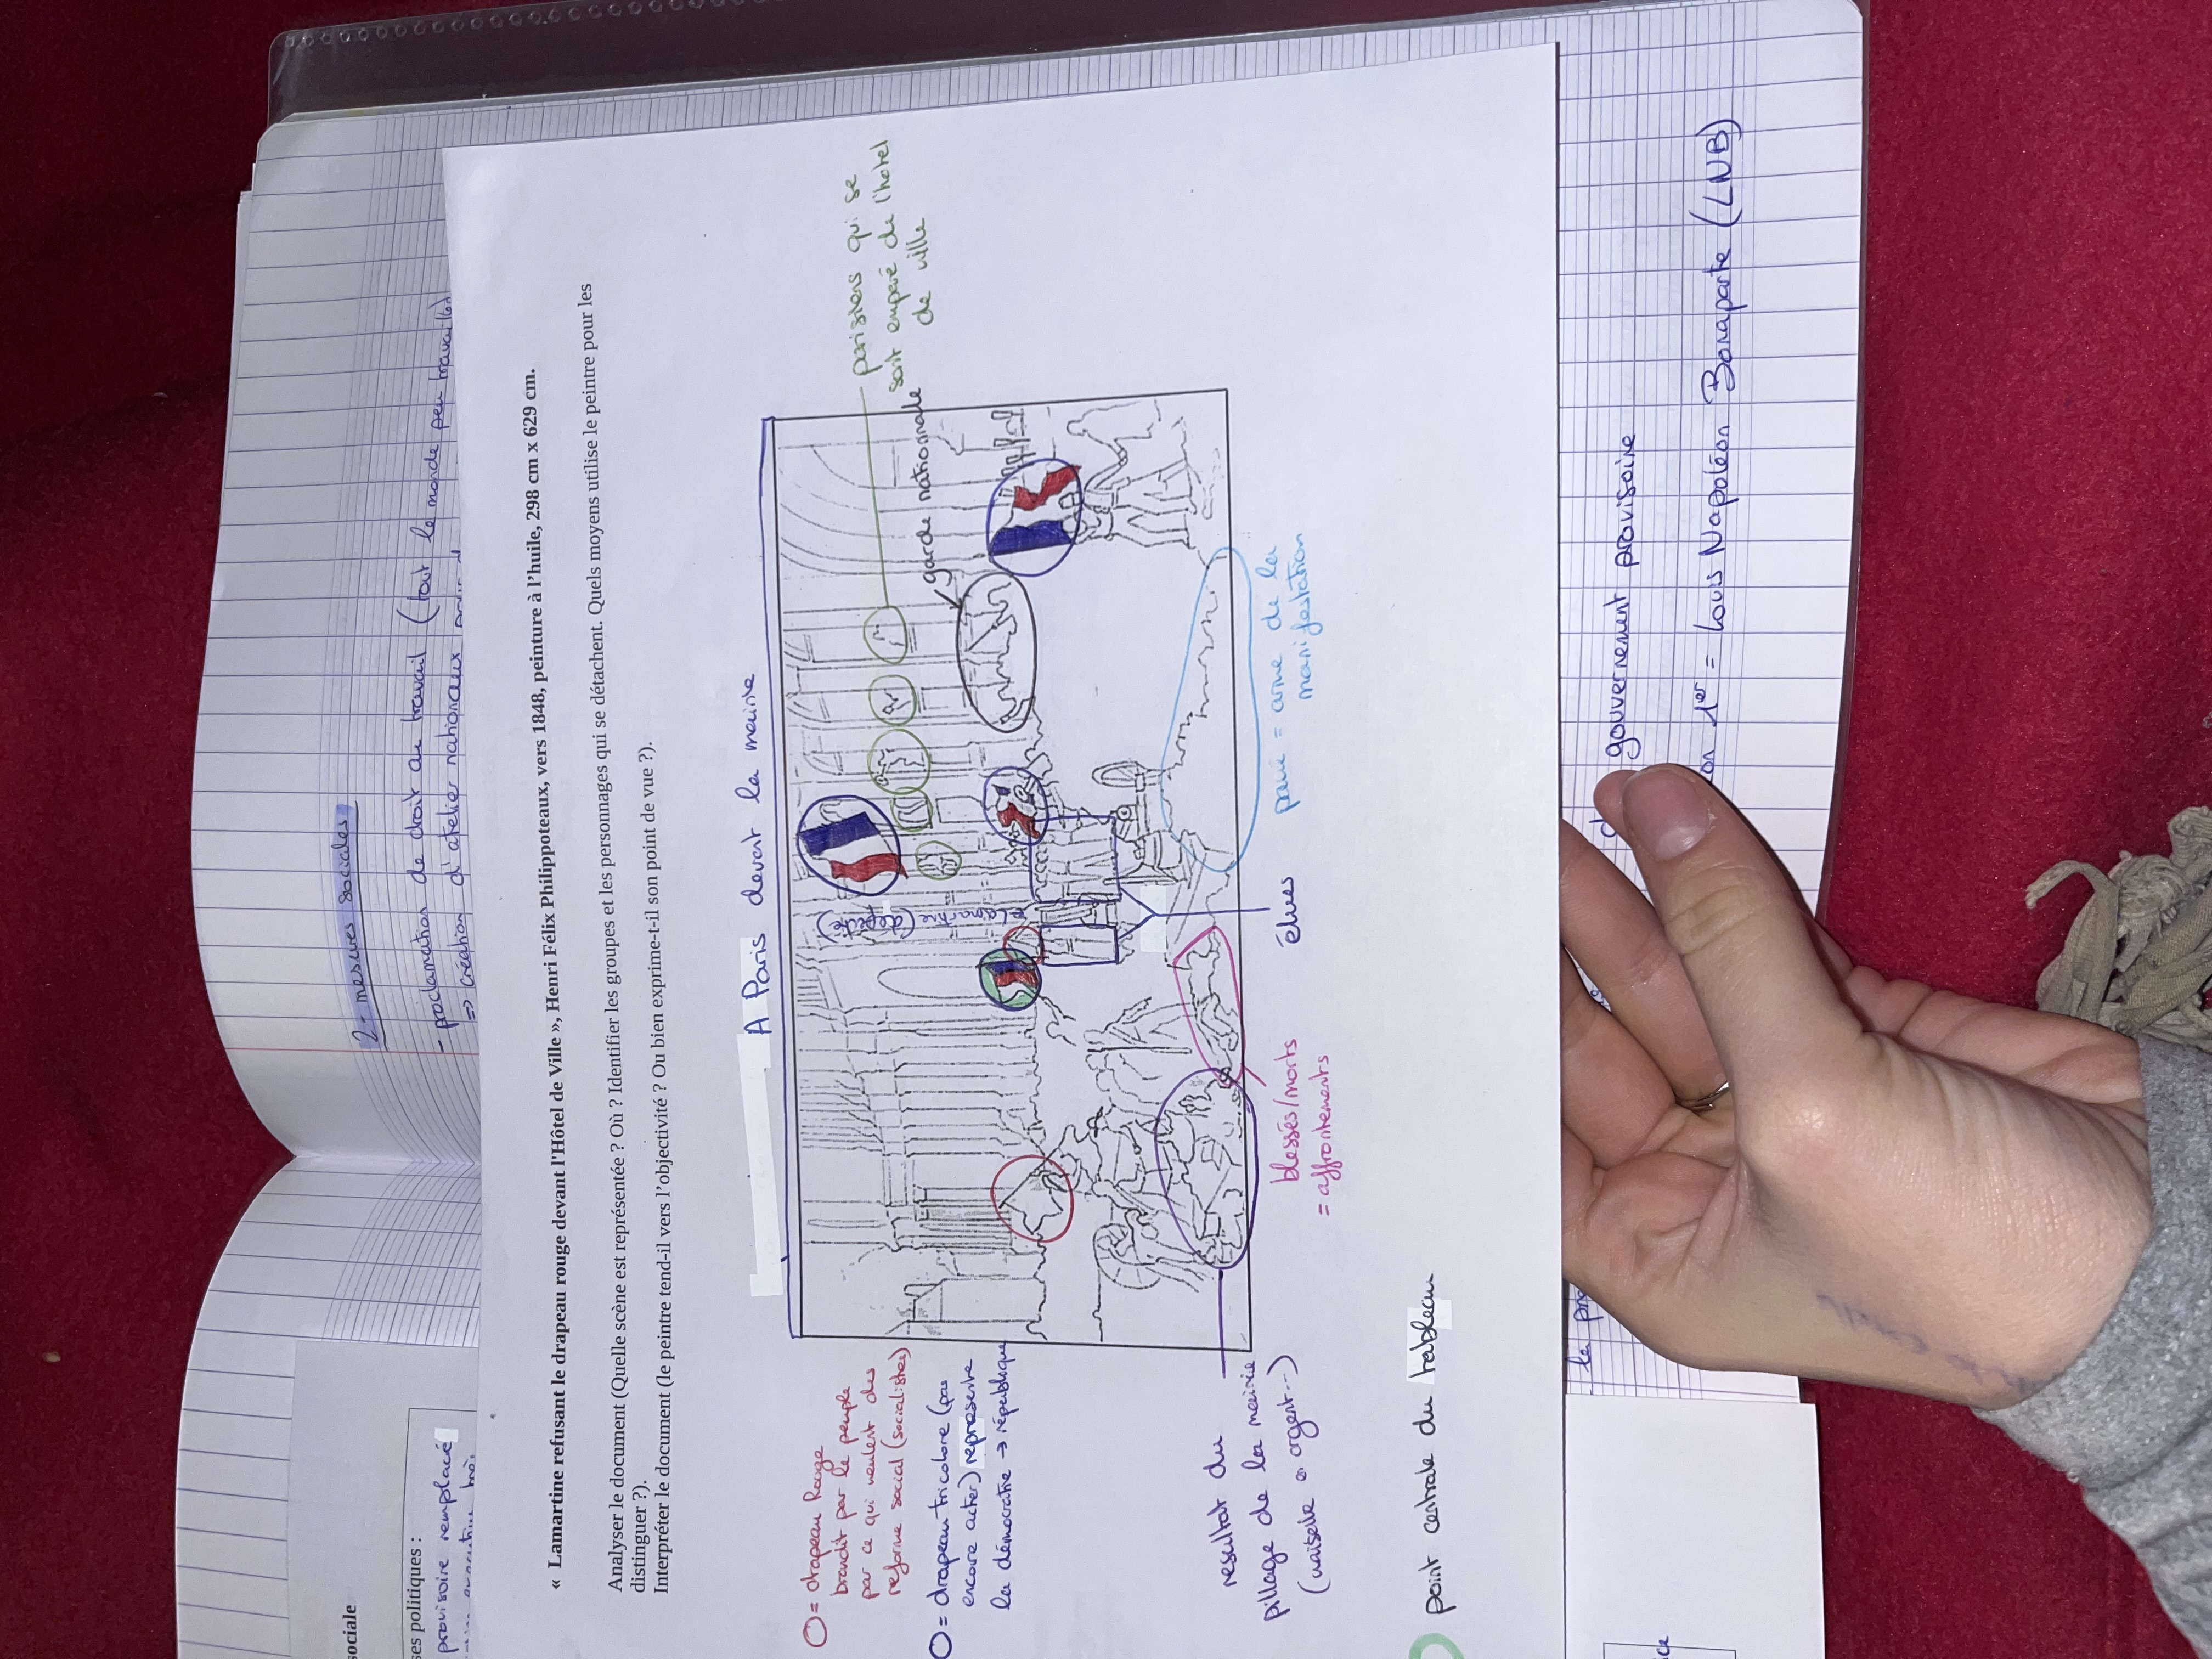 2 - mesures sociales
- proclamation de droit au travail (tout le monde peu travailler)
=> création d'atelier nationaux
sociale
ses politiques :
provisoire remplacé
« Lamartine refusant le drapeau rouge devant l'Hôtel de Ville », Henri Félix Philippoteaux, vers 1848, peinture à l'huile, 298 cm x 629 cm.
Analyser le document (Quelle scène est représentée ? Où ? Identifier les groupes et les personnages qui se détachent. Quels moyens utilise le peintre pour les
distinguer ?).
Interpréter le document (le peintre tend-il vers l'objectivité ? Ou bien exprime-t-il son point de vue ?).
A Paris devant la mairie
parisiens qui se
sont emparé de l'hotel
de ville
garde nationnale
Lamartine
O = drapeau Rouge
brandit par le peuple
par ce qui veulent des
reforme social (socialistes)
O = drapeau tricolore (pas
encore acter) represente
la démocratie → république
resultat du
pillage de la mairie
(vaiselle en argent...)
blessés/morts
= affrontements
élues
pavé = arme de la
manifestation
point centrale du tableau
gouvernement provisoire
1er = Louis Napoléon Bonaparte (LNB)